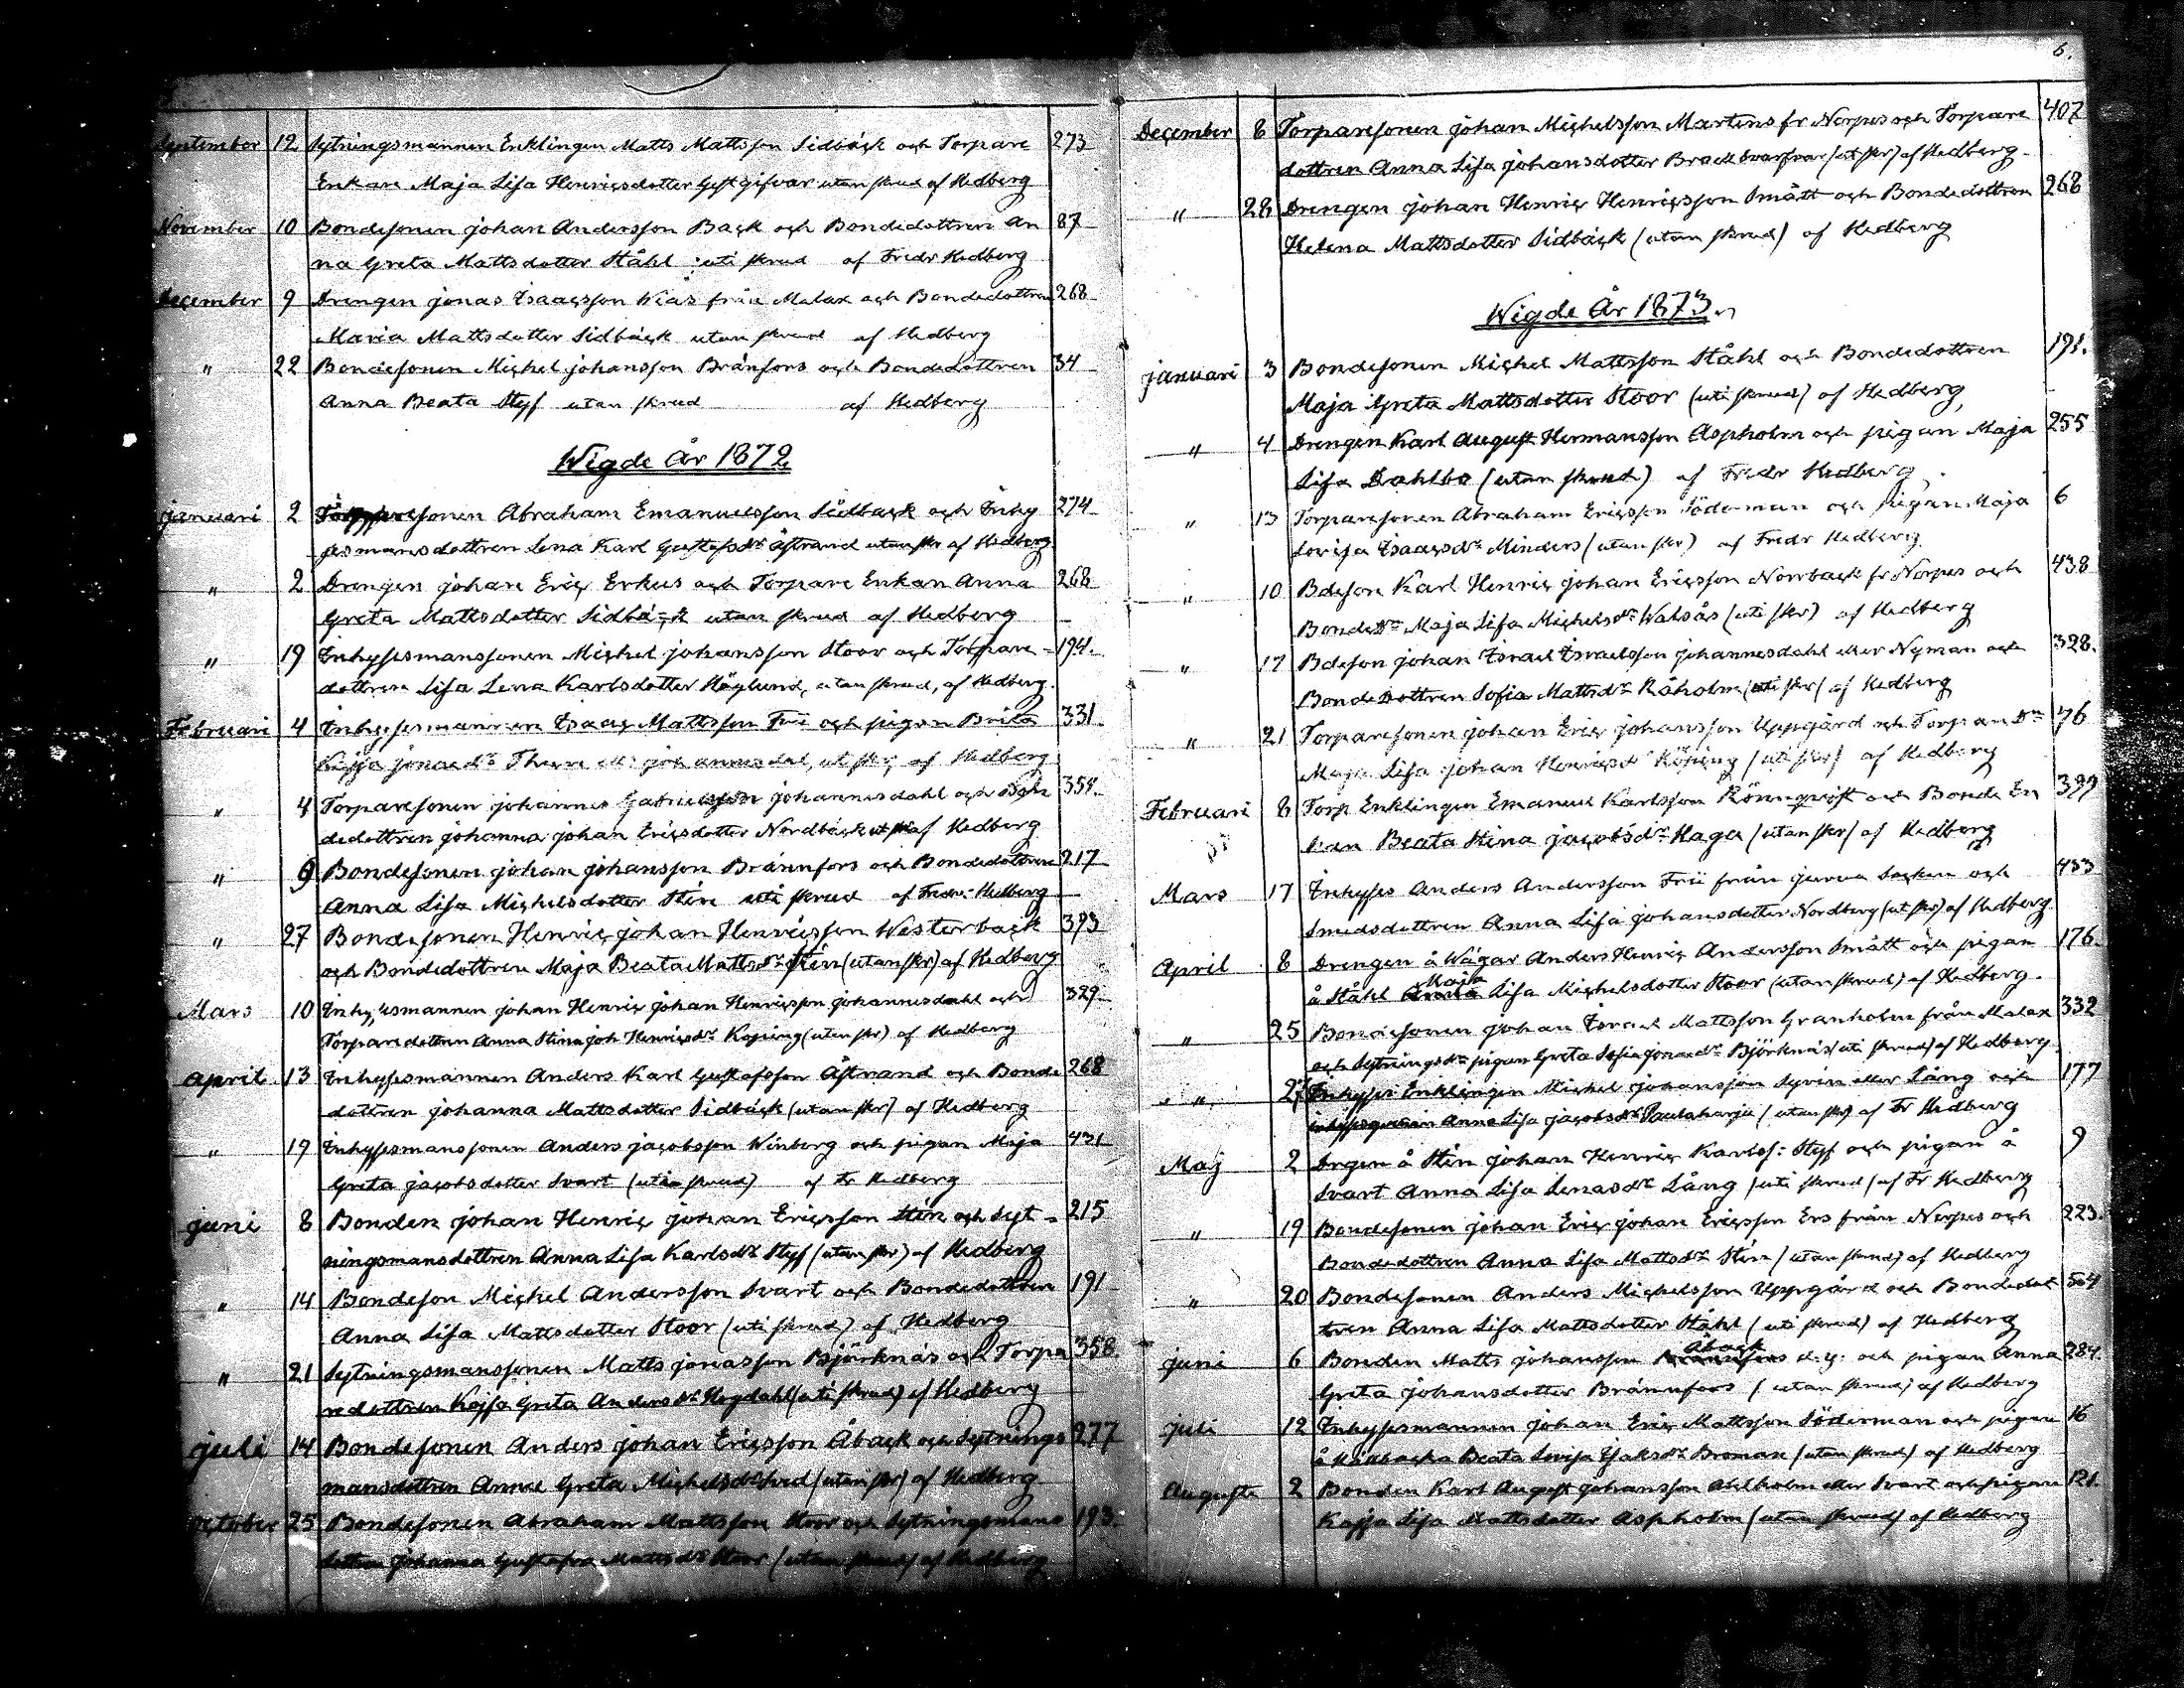 September 12 Sytningsmannen Enklingen Matts Mattsson Sidbäck och Torpare 273
Enkan Maja Lisa Henricsdotter Gestgifvar utan skrud af Hedberg
November 10 Bondesonen Johan Andersson Back och Bondedottren An 87
na Greta Mattsdotter Ståhl uti skrud af Fredr Hedberg
December 9 Drengen Jonas Isaacsson Kias från Malax och Bondedottren 268
Maria Mattsdotter Sidbäck utan skrud af Hedberg
" 22 Bondesonen Michel Johansson Bränfors och Bondedottren 34
Anna Beata Styf utan skrud af Hedberg
Wigde År 1872
Januari 2 Torparesonen Abraham Emanuelsson Sidback och Inhy 274
sesmansdottren Lena Karl Gustafsdr Åstrand utan skr af Hedberg
" 2 Drengen Johan Eric Erkus och Torpare Enkan Anna 268
Greta Mattsdotter Sidbäck utan skrud af Hedberg
" 19 Inhysesmanssonen Michel Johansson Stoor och Torpare 194
dottren Lisa Lena Karlsdotter Höglund, utan skrud, af Hedberg.
Februari 4 Inhysesmannen Isaac Mattsson Frii och pigan Brita 331
Kajsa Jonaedr Johannesdal, ut skr, af Hedberg
" 4 Torparesonen Johannes Gabrielsson Johannesdahl och Bon 354
dedottren Johanna Johan Ericsdotter Nordbäck ut skr af Hedberg
" 9 Bondesonen Johan Johansson Brännfors och Bondedottren 217
Anna Lisa Michelsdotter Stén uti skrud af Fredr Hedberg
" 27 Bondesonen Henric Johan Henricsson Westerback 393
och Bondedottren Maja Beata Mattsdr Stén (utan skr) af Hedberg
Mars 10 Inhysesmannen Johan Henric Johan Henricsson Johannesdahl och 329
Torparedottren Anna Stina Joh Henricsdr Köping (utan skr) af Hedberg
April 13 Inhysesmannen Anders Karl Gustafsson Åstrand och Bonde 268
dottren Johanna Mattsdotter Sidbäck (utan skr) af Hedberg
" 19 Inhysesmanssonen Anders Jacobsson Winberg och pigan Maja 431
Greta Jacobsdotter Svart (utan skrud) af Fr Hedberg
Juni 8 Bonden Johan Henric Johan Ericsson Stén och Syt- 215
ningsmansdottren Anna Lisa Karlsdr Styf (utan skr) af Hedberg
" 14 Bondeson Michel Andersson Svart och Bondedottren 191
Anna Lisa Mattsdotter Stoor (uti skrud) af Hedberg
" 21 Sytningsmanssonen Matts Jonasson Björknäs och Torpa 358
redottren Kajsa Greta Andersdr Högdahl (uti skrud) af Hedberg
Juli 14 Bondesonen Anders Johan Ericsson Åback och Sytnings 277
mansdottren Anna Greta Michelsdr (utan skr) af Hedberg
October 25 Bondesonen Abraham Mattsson Stoor och Sytningsmans 193
dottren Johanna Gustafva Mattsdr Stoor (utan skrud) af Hedberg
6.
December 8 Torparesonen Johan Michelsson Martens fr Nerpes och Torpare 407
dottren Anna Lisa Johansdotter Brack Svarfvar (ut skr) af Hedberg
" 28 Drengen Johan Henric Henricsson Smått och Bondedottren 268
Helena Mattsdotter Sidbäck (utan skrud) af Hedberg
Wigde År 1873.
Januari 3 Bondesonen Michel Mattsson Ståhl och Bondedottren 191.
Maja Greta Mattsdotter Stoor (uti skrud) af Hedberg
" 4 Drengen Karl August Hermansson Aspholm och pigan Maja 255
Lisa Dahlbo (utan skrud) af Fredr Hedberg
" 13 Torparesonen Abraham Ericsson Söderman och pigan Maja 6
Lovisa Isaacsdr Minders (utan skr) af Fredr Hedberg
" 10 Bdeson Karl Henric Johan Ericsson Norrback fr Nerpes och 438
BondeDr Maja Lisa Michelsdr Walsås (uti skr) af Hedberg
" 17 Bdeson Johan Israel Israelsson Johannesdahl eller Nyman och 328.
BondeDottren Sofia Mattsdr Råholm (uti skr) af Hedberg
" 21 Torparesonen Johan Eric Johansson Uppgård och TorpareDr 76
Maja Lisa Johan Henricsdr Köping (uti skr) af Hedberg
Februari 8 Torp Enklingen Emanuel Karlsson Rönnqvist och Bonde En 399
kan Beata Stina Jacobsdr Haga (utan skr) af Hedberg
Mars 17 Inhyses Anders Andersson Frii från Jurva socken och 433
Smedsdottren Anna Lisa Johansdotter Nordberg (ut skr) af Hedberg
April 8 Drengen å Wägar Anders Henric Andersson Smått och pigan 176
Maja
å Ståhl Lisa Michelsdotter Stoor (utan skrud) af Hedberg.
" 25 Bondesonen Johan Israel Mattsson Granholm från Malax 332
och Sytningsdr pigan Greta Sofia Jonaedr Björknäs (uti skrud) af Hedberg
" 27 Inhyses Enklingen Michel Johansson Syrén eller Lång och 177
Anna Lisa Jacobsdr Pantaharju (utan skr) af Fr Hedberg
Maj 2 Drgen å Stén Johan Henric Karlss: Styf och pigan å 9
Svart Anna Lisa Lenasdr Lång (uti skrud) af Fr Hedberg
" 19 Bondesonen Johan Eric Johan Ericsson Ers från Nerpes och 223.
Bondedottren Anna Lisa Mattsdr Stén (utan skrud) af Hedberg
" 20 Bondesonen Anders Michelsson Uppgård och Bondedot 504
tren Anna Lisa Mattsdotter Ståhl (uti skrud) af Hedberg
Åback
Juni 6 Bonden Matts Johansson Brännfors d.y. och pigan Anna 284.
Greta Johansdotter Brännfors (utan skrud) af Hedberg
Juli 12 Inhysesmannen Johan Eric Mattsson Söderman och pigan 16
å Beata Lovisa Isaksdr Broman (utan skrud) af Hedberg
Augusti 2 Bonden Karl August Johansson Ahlholm eller Svart och pigan 121.
Kajsa Lisa Mattsdotter Aspholm (utan skrud) af Hedberg